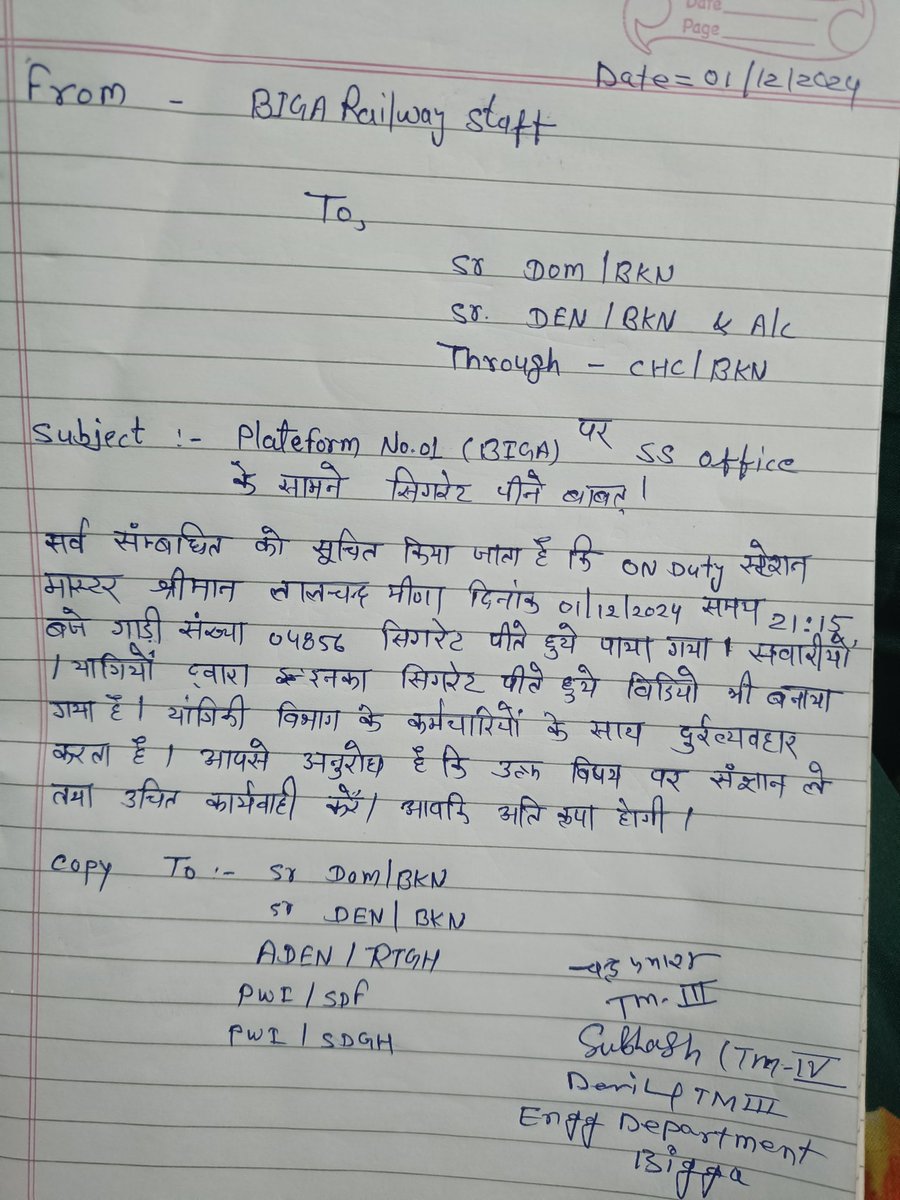 Date
Page
Date = 01/12/2024
From - BIGA Railway staff
To,
Sr Dom/BKN
Sr. DEN/BKN & A/c
Through - CHC/BKN
Subject :- Plateform No.01 (BIGA) पर SS office
के सामने सिगरेट पीने बाबत्।
सर्व संम्बधित को सूचित किया जाता है कि ON Duty स्टेशन
मास्टर श्रीमान लालचन्द मीणा दिनांक 01/12/2024 समय 21:15
बजे गाड़ी संख्या 04856 सिगरेट पीते हुये पाया गया। सवारीयों
/ यात्रियों द्वारा इनका सिगरेट पीते हुये विडियो भी बनाया
गया है। यांत्रिकी विभाग के कर्मचारियों के साथ दुर्रव्यवहार
करता है। आपसे अनुरोध है कि उक्त विषय पर संज्ञान ले
तथा उचित कार्यवाही करें। आपकि अति कृपा होगी।
Copy To :- Sr Dom/BKN
Sr DEN/BKN
ADEN/RTGH
PWI/SDF
PWI/SDGH
TM-III
Subhash (TM-IV
TM III
Engg Department
Bigga